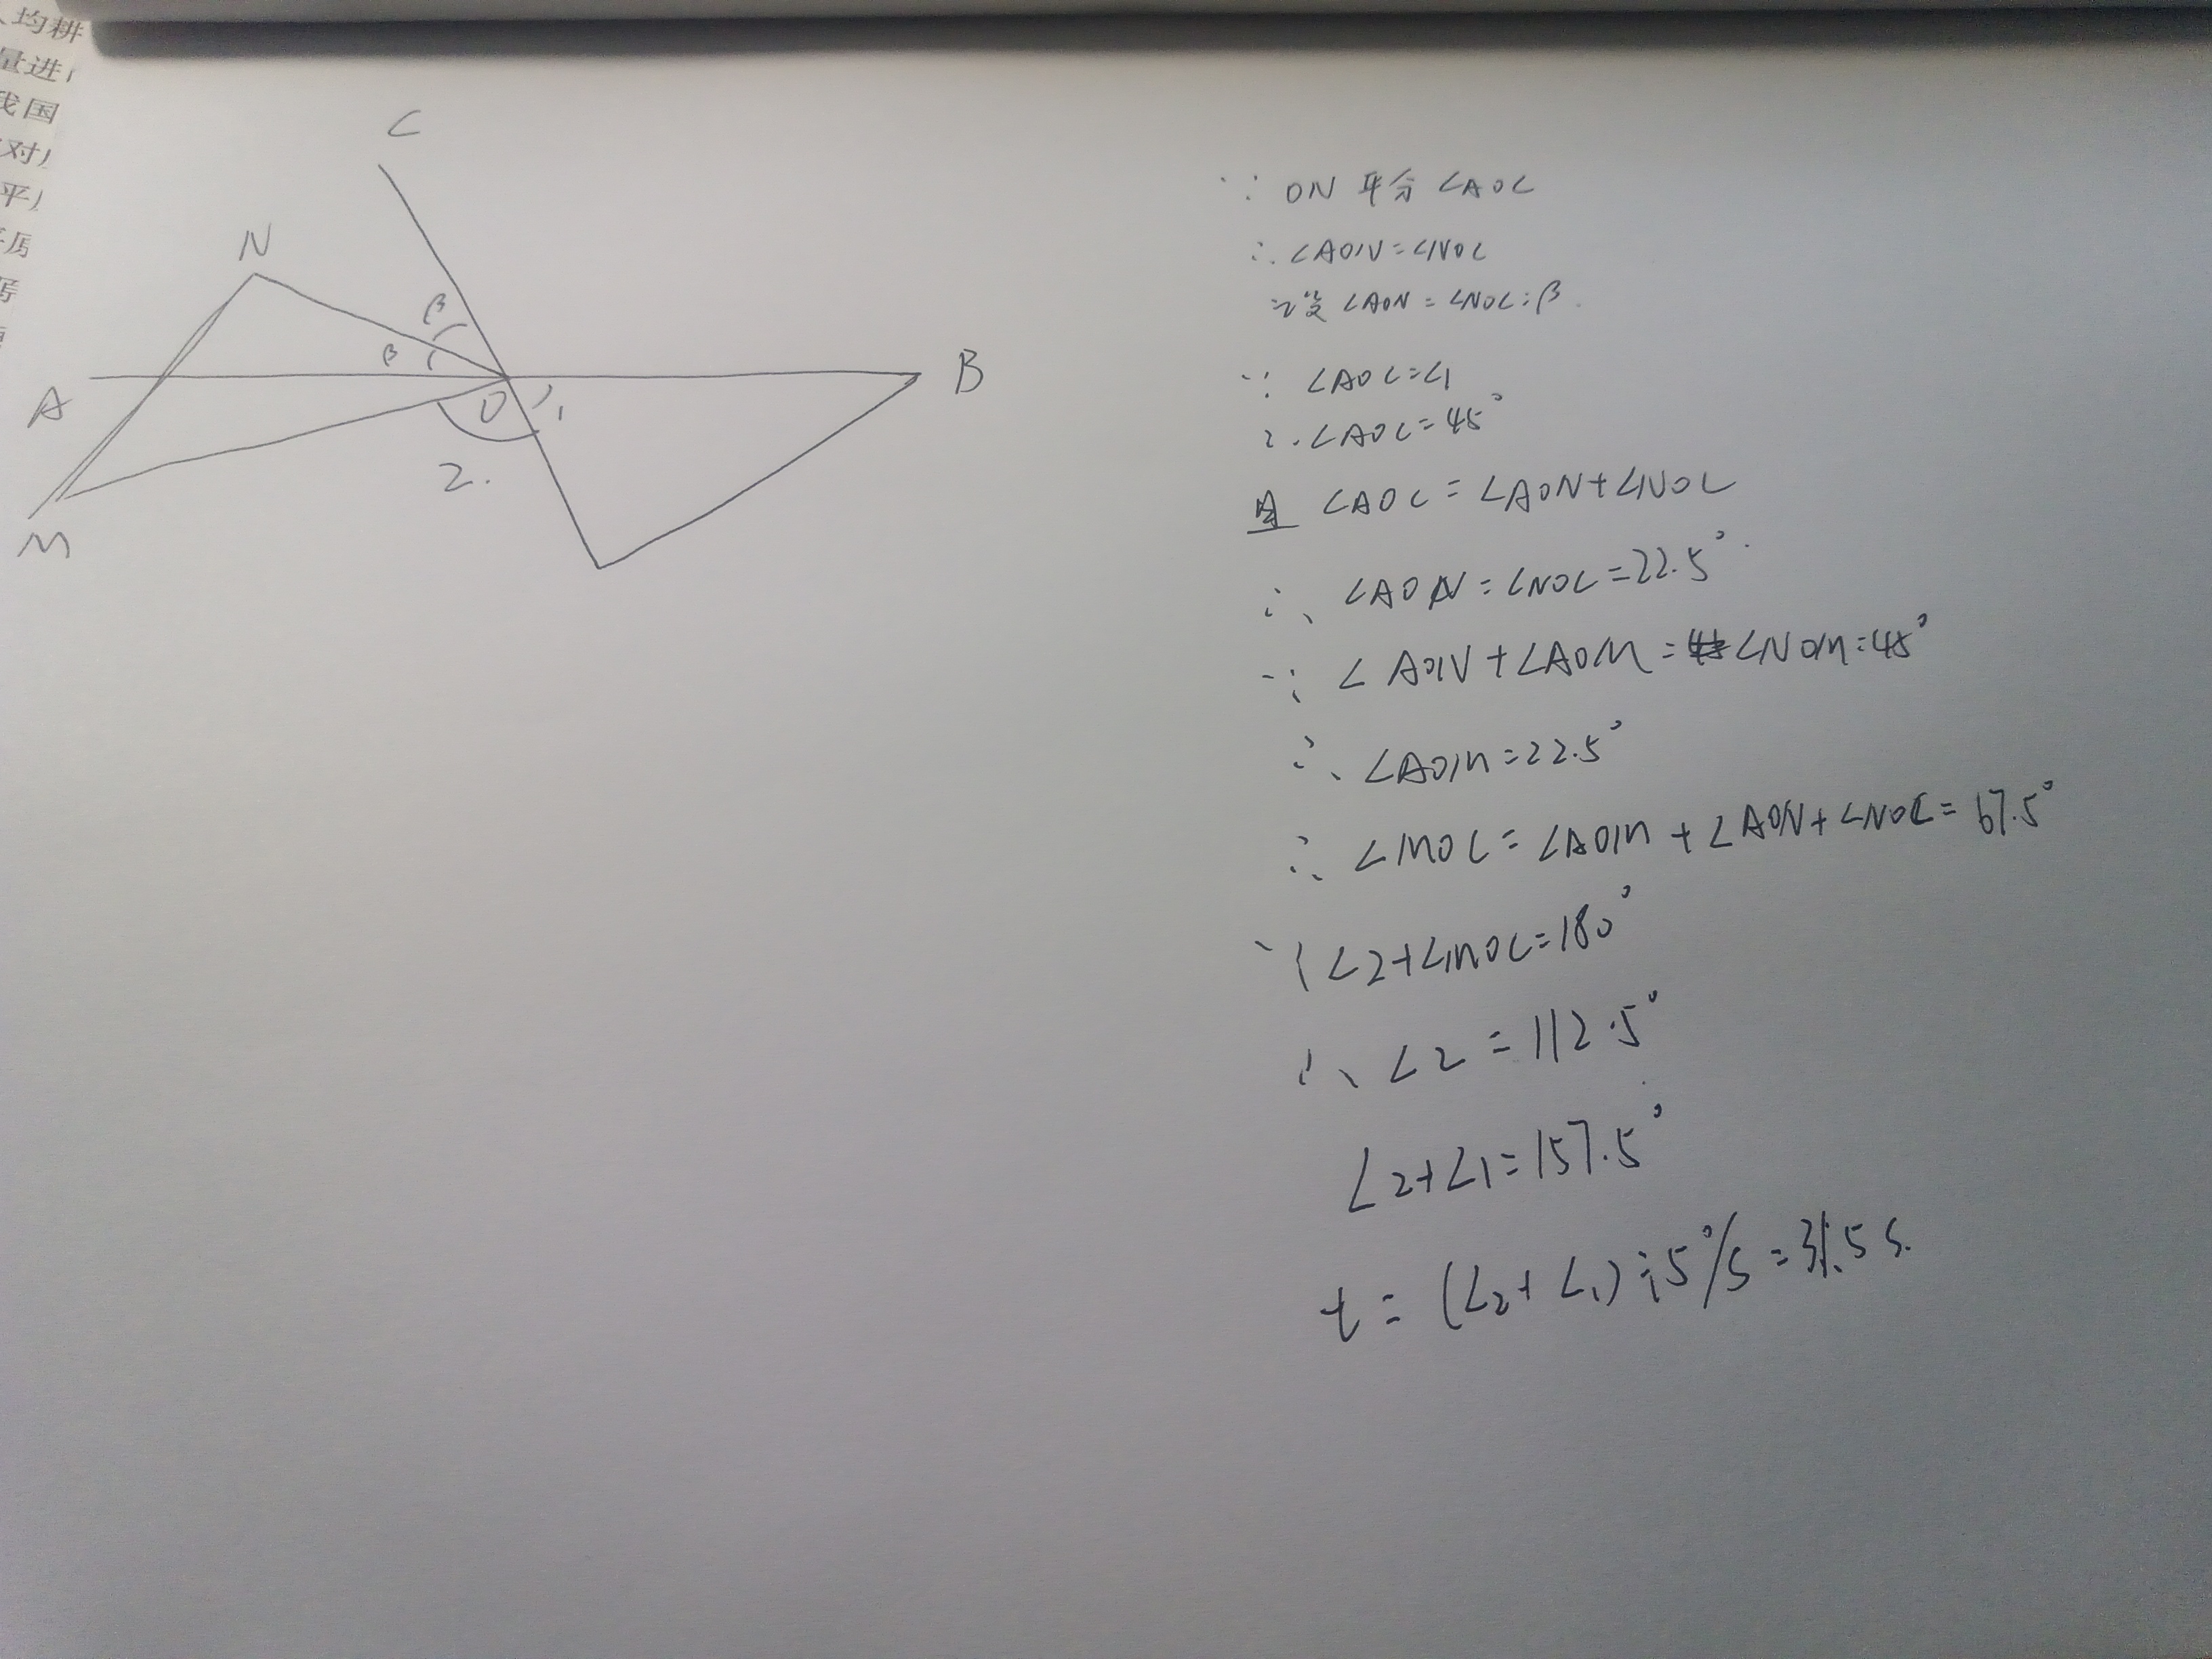 人均耕
量进行
我国
对
平
C
N
β
β
A
O
1
B
2.
M
∵ ON 平分 ∠AOC
∴ ∠AON=∠NOC
设 ∠AON = ∠NOC=β.
∵ ∠AOC=∠1
∴ ∠AOC=45°
∠AOC = ∠AON+∠NOC
∴ ∠AON=∠NOC=22.5°.
∵ ∠AON+∠AOM=∠NOM=45°
∴ ∠AOM=22.5°
∴ ∠MOC=∠AOM+∠AON+∠NOC=67.5°
∵ ∠2+∠MOC=180°
∴ ∠2=112.5°
∠2+∠1=157.5°
t=(∠2+∠1)÷5°/s=31.5s.